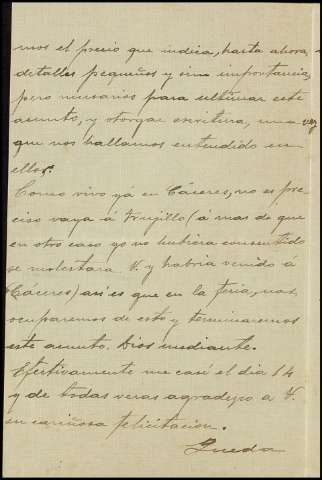 mos el precio que indica, hasta ahora,
detalles pequeños y sin importancia,
pero necesarios para ultimar este
asunto, y otorgar escritura, una vez
que nos hallamos entendido en
ellos.
Como vivo yá en Cáceres, no es pre
ciso vaya á Trujillo (á mas de que
en otro caso yo no hubiera consentido
se molestara V. y habria venido á
Cáceres) asi es que en la feria, nos
ocuparemos de esto y terminaremos
este asunto. Dios mediante.
Efectivamente me casé el dia 14
y de todas veras agradezco a V.
su cariñosa felicitacion.